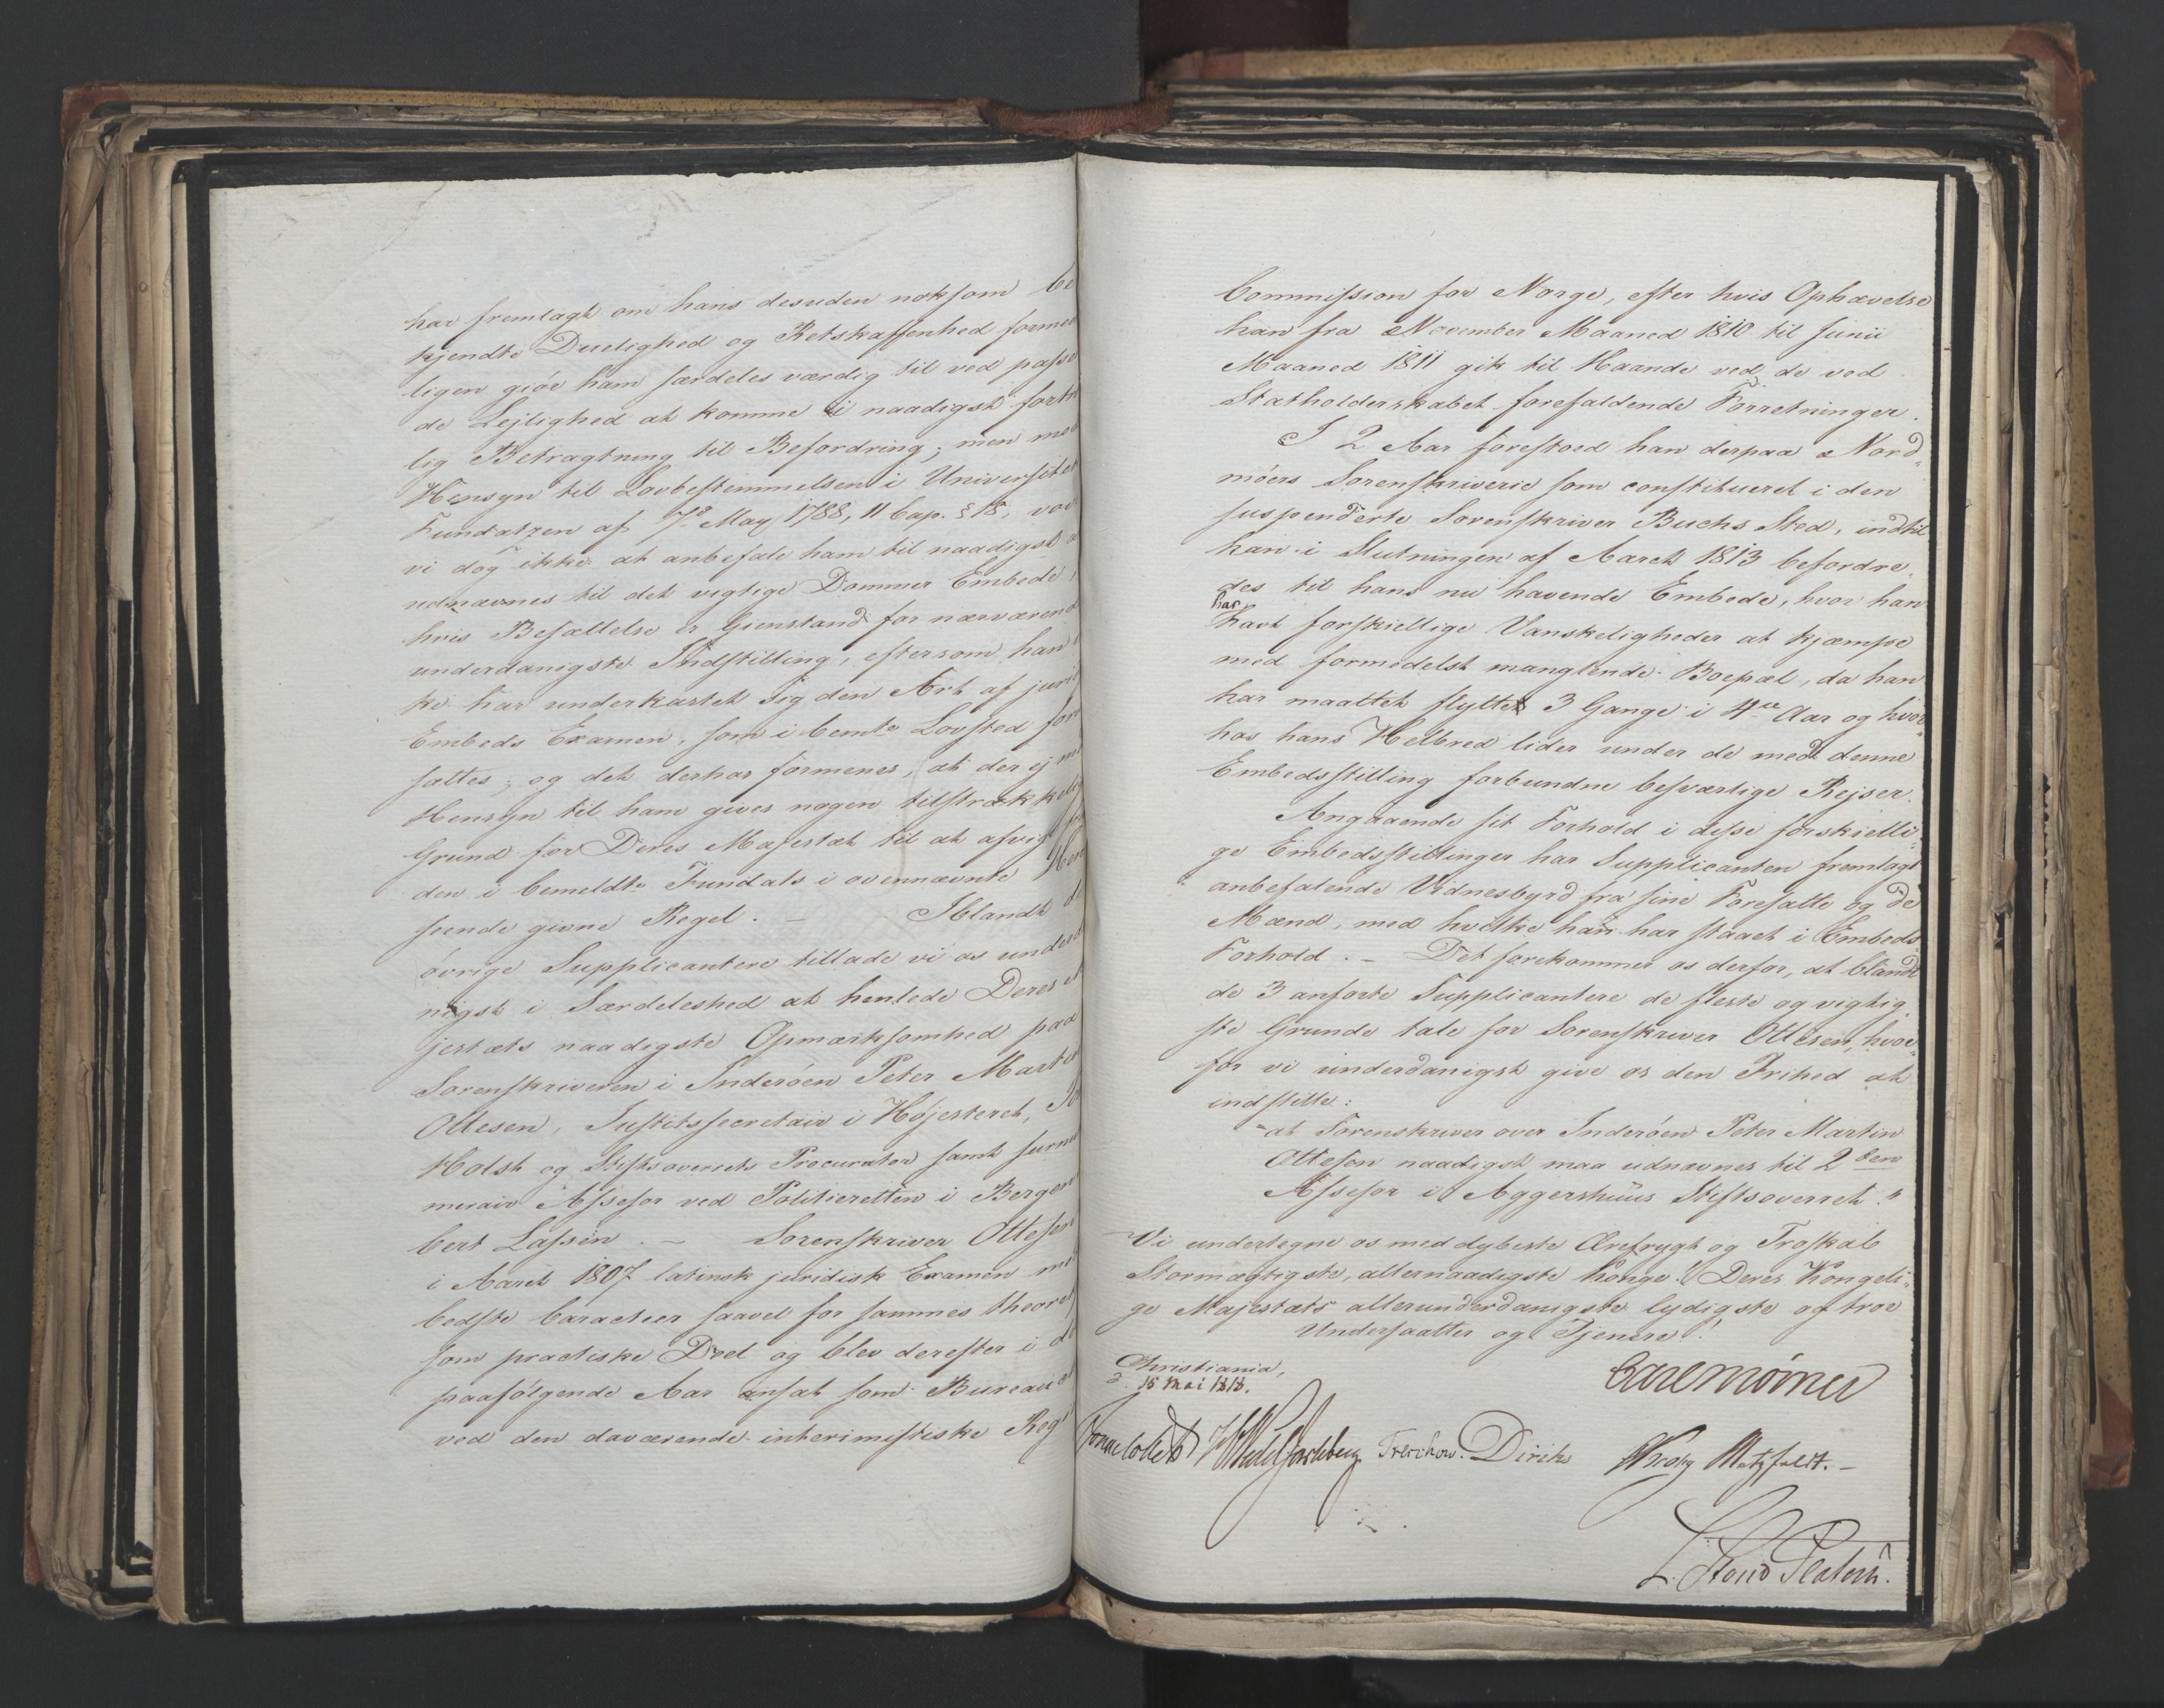 har fremlagt om hans desuden noksom be
kjendte Duelighed og Retskaffenhed formee
ligen giør ham særdeles værdig til ved passe
de Lejlighed at komme i naadigst fortri
lig Betragtning til Befordring; men med
Hensyn til Lovbestemmelsen i Universitet
Fundatzen af 7de May 1788, 11 Cap. § 18, vove
vi dog ikke at anbefale ham til naadigst a
udnævnes til det vigtige Dommer Embede,
hvis Besættelse er Gienstand for nærværend
underdanigste Indstilling, eftersom han i
ke har underkastet sig den Art af juri
Embeds Examen, som i bemte Lovsted for
sattes; og det derhos formenes, at der ej med
Hensyn til ham gives nogen tilstrækkelig
Grund for Deres Majestæt til at afvige fra
den i bemeldte Fundats i ovennævnte Hen
seende givne Regel. — Iblandt de
øvrige Supplicantere tillade vi os underd
nigst i Særdeleshed at henlede Deres M
jestæts naadigste Opmærksomhed paa
Sorenskriveren i Inderøen Peter Martin
Ottesen, Justitssecretair i Højesteret,
Holst og Stiftsoverrets Procurator samt surnu
merair Assessor ved Politieretten i Bergen
bert Lassen. — Sorenskriver Ottesen
i Aaret 1807 latinsk juridisk Examen me
bedste Caracteer saavel for sammes theoret
som practiske Deel og blev derefter i de
paafølgende Aar ansat som Bureau
ved den daværende interimistiske Reg
Commission for Norge, efter hvis Ophævelse
han fra November Maaned 1810 til Junii
Maaned 1811 gik til Haande ved de ved
Statholderskabet forefaldende Forretninger.
I 2 Aar forestoed han derpaa Nord-
møers Sorenskriverie som constitueret i den
suspenderte Sorenskriver Buchs Sted, indtil
han i Slutningen af Aaret 1813 befordre-
des til hans nu havende Embede, hvor han
har
havt forskiellige Vanskeligheder at kjæmpe
med formedelst manglende Boepæl, da han
har maattet flytte 3 Gange i 4re Aar og hvor-
hos hans Helbred lider under de med denne
Embedsstilling forbundne besværlige Rejser.
Angaaende sit Forhold i disse forskielli-
ge Embedsstillinger har Supplicanten fremlagt
anbefalende Vidnesbyrd fra sine Foresatte og de
Mænd, med hvilke han har staaet i Embeds-
Forhold. — Det forekommer os derfor, at blandt
de 3 anførte Supplicantere de fleste og vigtig-
ste Grunde tale for Sorenskriver Ottesen, hvor-
for vi underdanigst give os den Frihed at
indstille:
"at Sorenskriver over Inderøen Peter Martin
Ottesen naadigst maa udnævnes til 2den
Assessor i Aggershuus Stiftsoverret."
Vi undertegne os med dybeste Ærefrygt og Troskab
Stormægtigste, allernaadigste Konge! Deres Kongeli-
ge Majestæts allerunderdanigste lydigste og troe
Undersaatter og Tjenere!
Christiania,
d. 15 Mai 1818.
Carl Mörner
Jonas Collett HWedelJarlsberg Treschow. Diriks Krogh Motzfeldt. —
L. Stoud Platou.